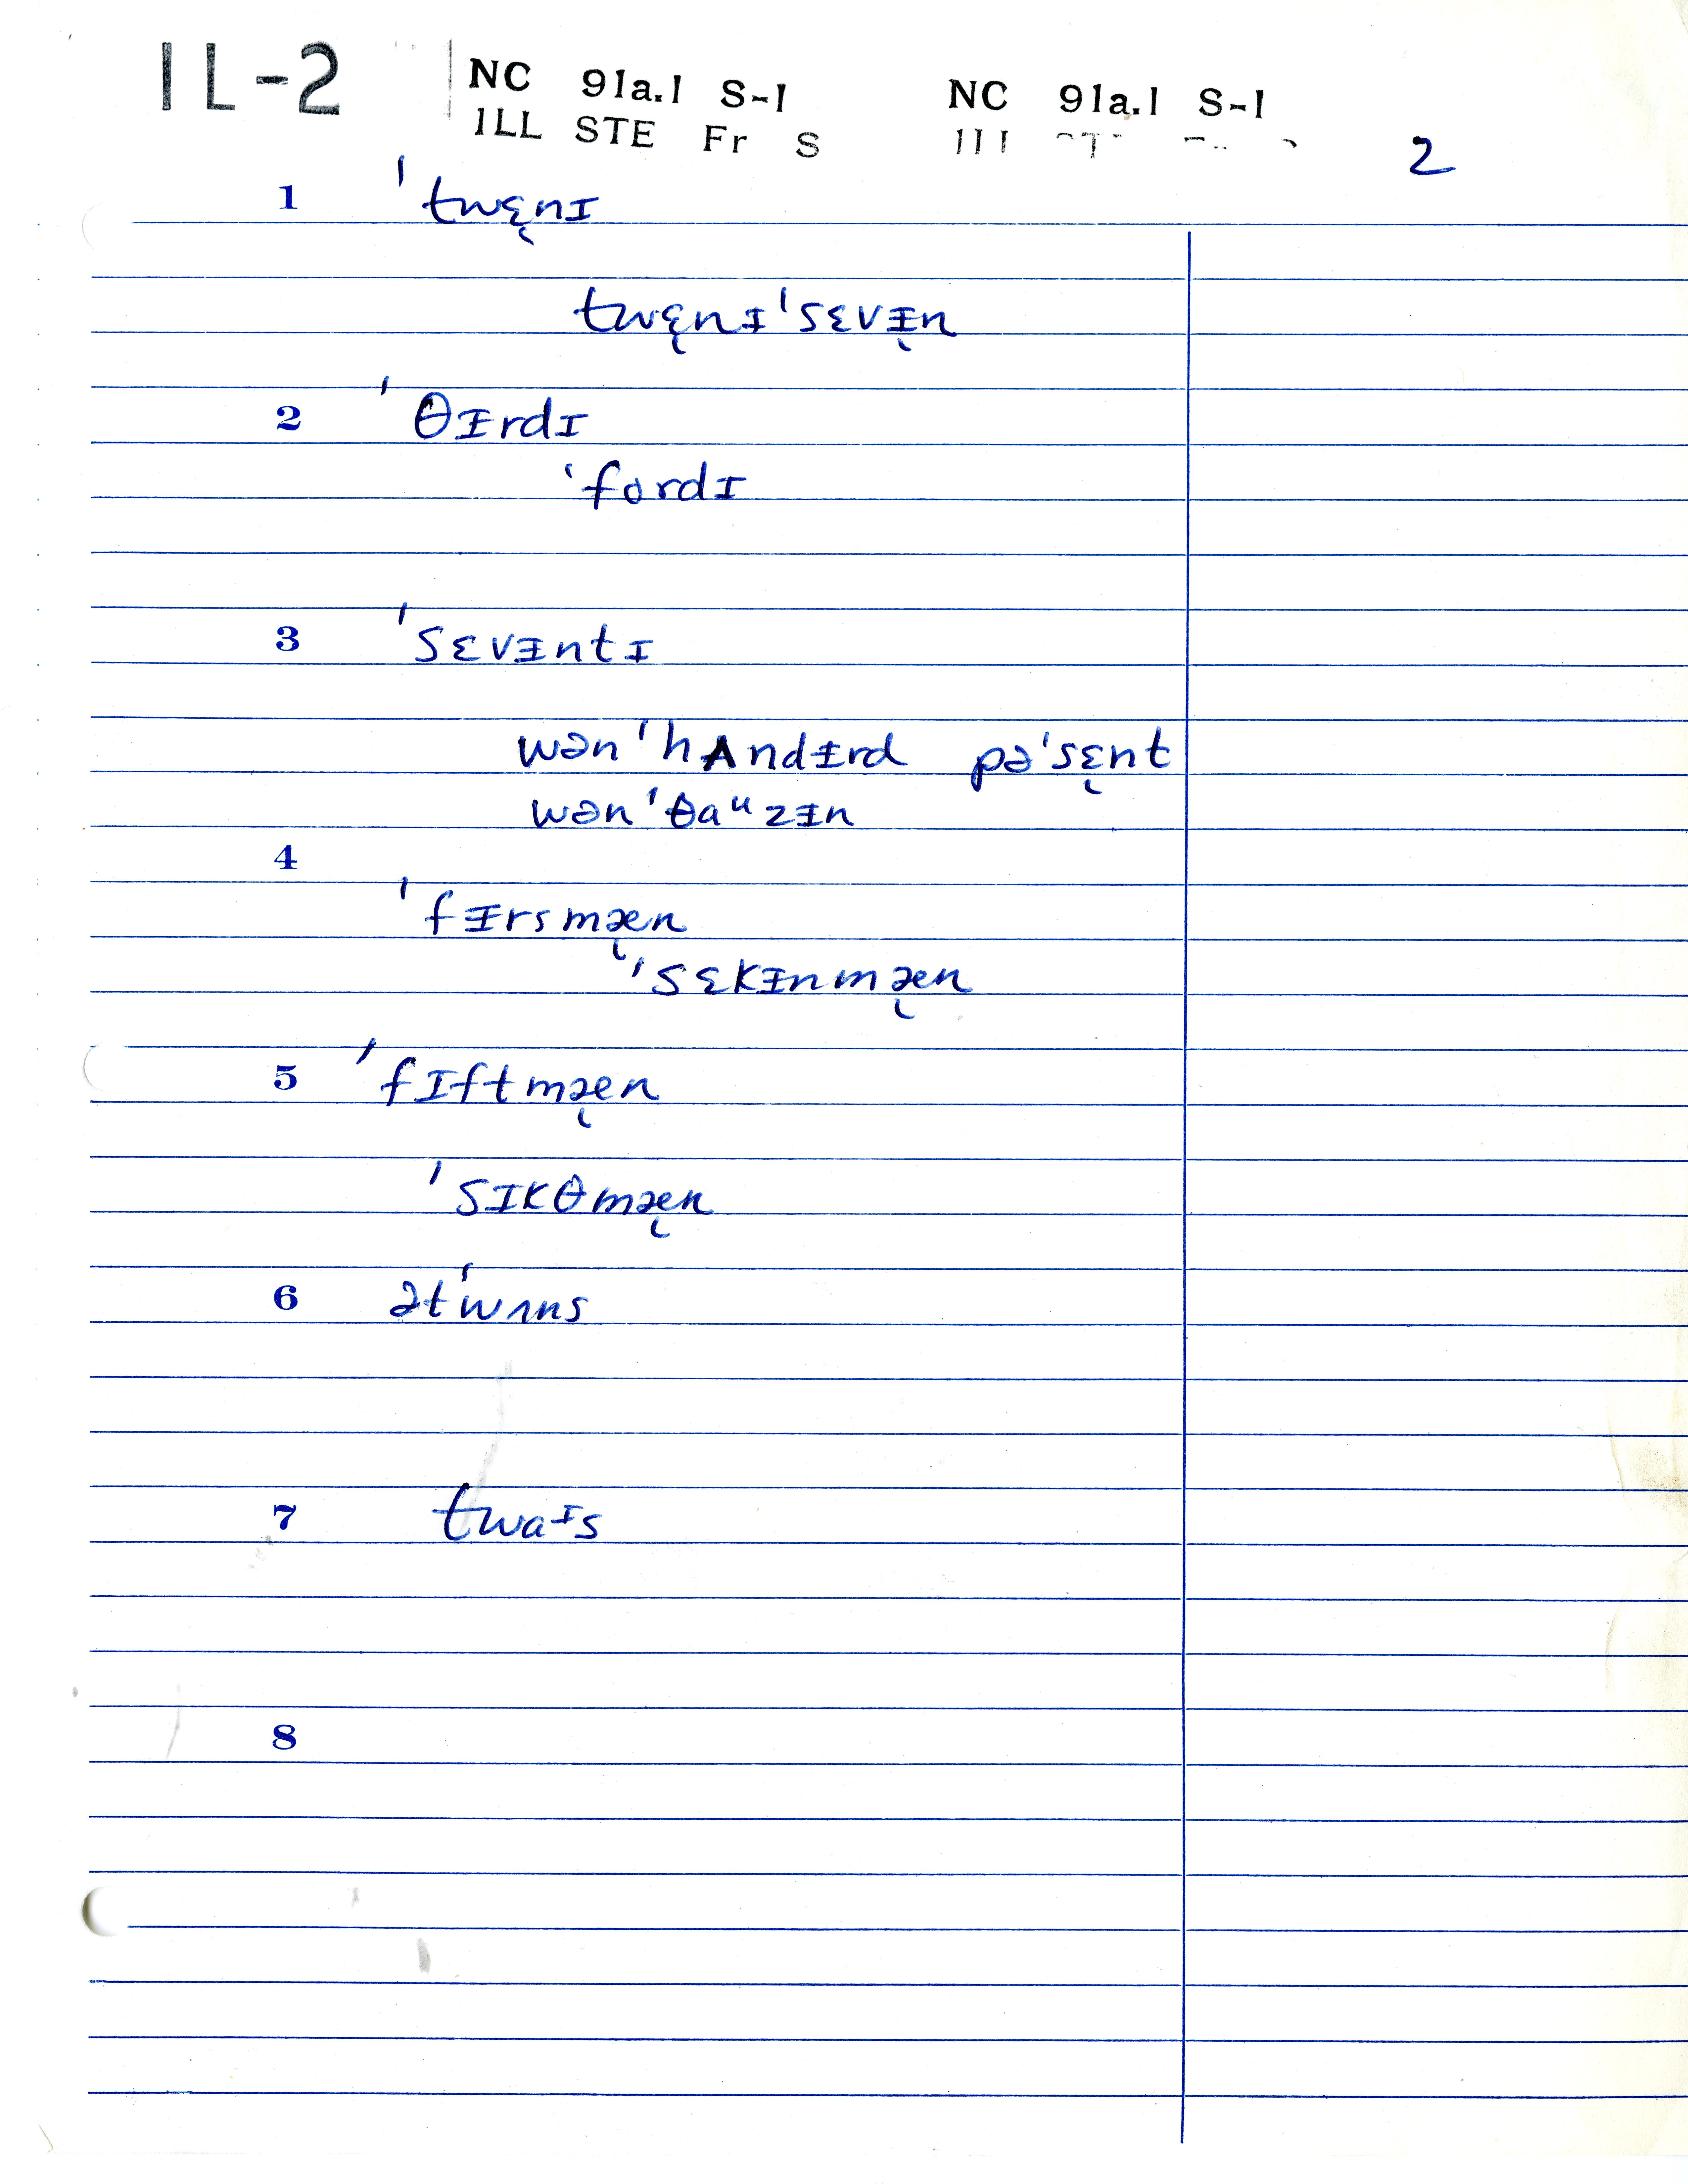 IL-2 NC 91a.1 S-1 NC 91a.1 S-1
ILL STE Fr S
2
1 ˈtwɛ̨nɪ
twɛ̨nɪˈsɛvᵻ̨n
2 ˈθᵻrdɪ
ˈfordɪ
3 ˈsɛvᵻntɪ
wənˈhʌndᵻrd pəˈsɛ̨nt
wənˈθaᶸzᵻn
4
ˈfᵻrsmæ̨n
ˈsɛkᵻnmæ̨n
5 ˈfɪftmæ̨n
ˈsɪkθmæ̨n
6 ətˈwʌns
7 twaᶧs
8